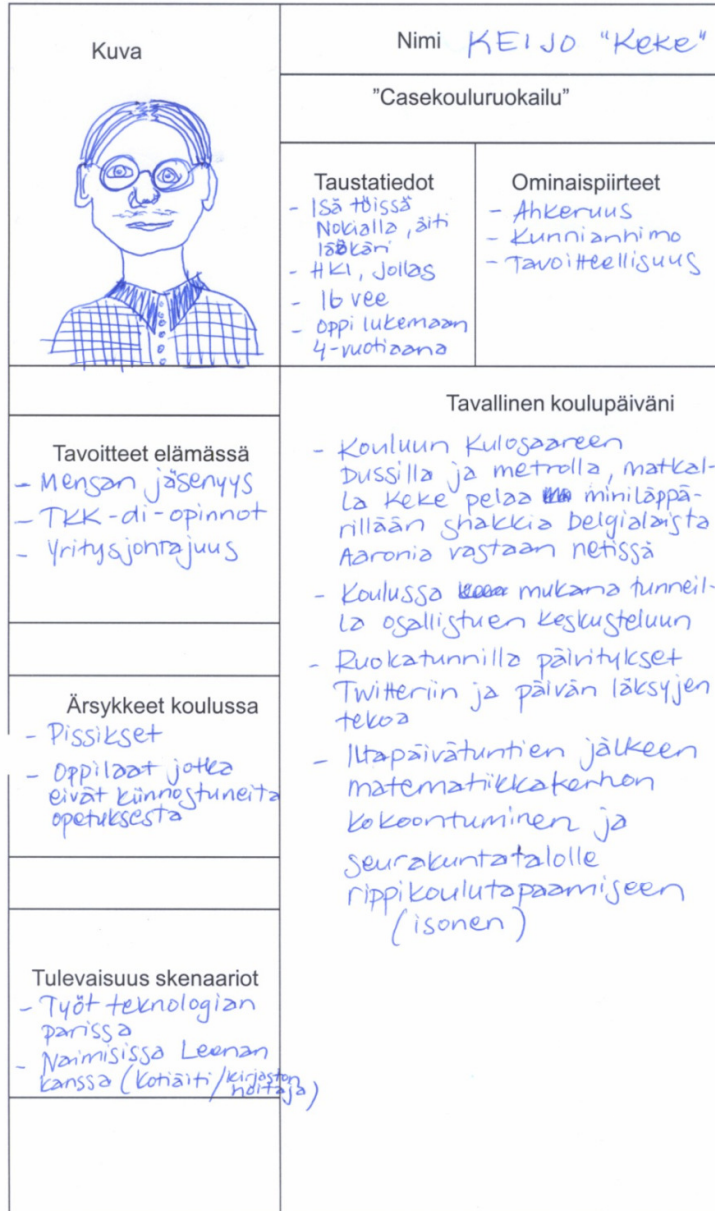 Kuva
Nimi KEIJO "Keke"
"Casekouluruokailu"
Taustatiedot
- Isä töissä
Nokialla, äiti
lääkäri
- HKI, Jollas
- 16 vee
- Oppi lukemaan
4-vuotiaana
Ominaispiirteet
- Ahkeruus
- Kunnianhimo
- Tavoitteellisuus
Tavoitteet elämässä
- Mensan jäsenyys
- TKK-di-opinnot
- Yritysjohtajuus
Ärsykkeet koulussa
- Pissikset
- Oppilaat jotka
eivät kiinnostuneita
opetuksesta
Tulevaisuus skenaariot
- Työt teknologian
parissa
- Naimisissa Leenan
kanssa (kotiäiti/kirjaston
hoitaja)
Tavallinen koulupäiväni
- Kouluun Kulosaareen
bussilla ja metrolla, matkal-
la Keke pelaa miniläppä-
rillään shakkia belgialaista
Aaronia vastaan netissä
- Koulussa mukana tunneil-
la osallistuen keskusteluun
- Ruokatunnilla päivitykset
Twitteriin ja päivän läksyjen
tekoa
- Iltapäivätuntien jälkeen
matematiikkakerhon
kokoontuminen ja
seurakuntatalolle
rippikoulutapaamiseen
(isonen)